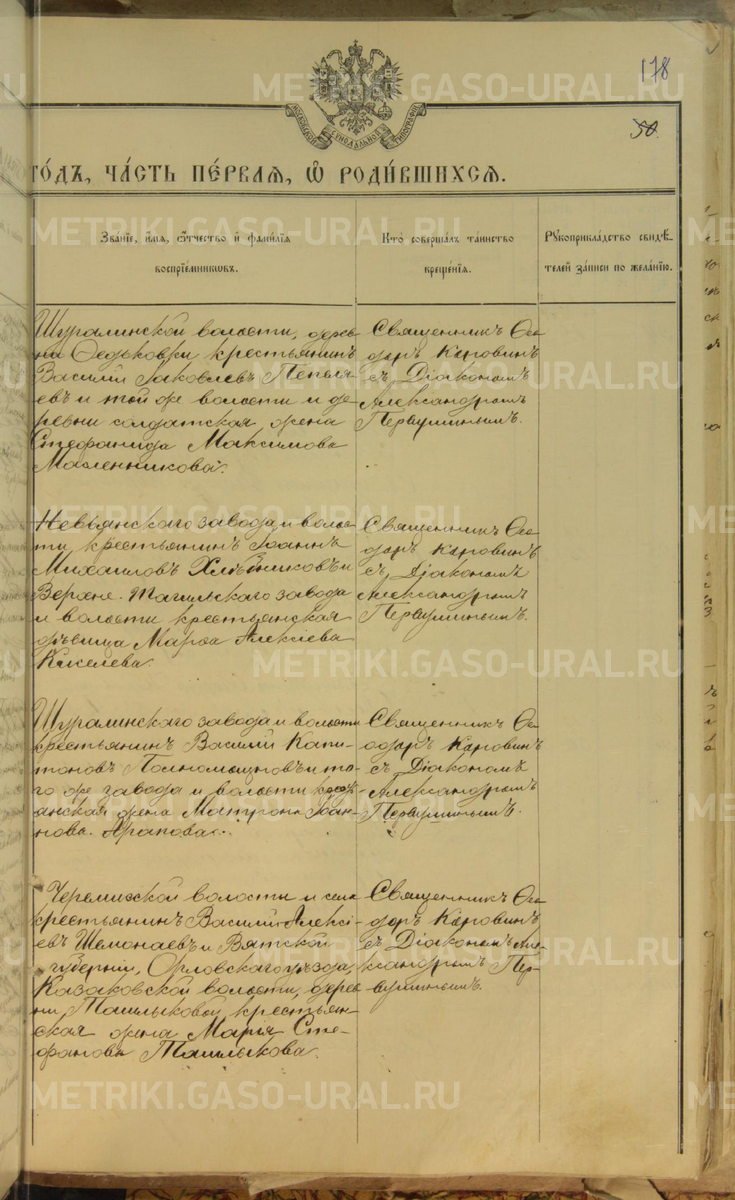 178
50.
МОСКОВСКОЙ СУНОДАЛЬНОЙ ТИПОГРАФІИ
го́дъ, ча́сть пе́рваѧ, ѡ҆ роди́вшихсѧ.
Зва́нїе, и҆́мѧ, ѻ҆́тчество и҆ фами́лїѧ
воспрїе́мникѡвъ.
Кто̀ соверша́лъ та́инство
креще́нїѧ.
Рꙋкоприкла́дство свидѣ́-
телей за́писи по жела́нїю.
Шуралинской волости, дерев-
ни Федьковки крестьянинъ
Василій Яковлевъ Пепеля-
евъ и той же волости и де-
ревни солдатская жена
Стефанида Максимова
Масленникова.
Священникъ Ѳе-
одоръ Каровинъ
съ Діакономъ
Александромъ
Первушинымъ.
Невьянскаго завода и волос-
ти, крестьянинъ Іоаннъ
Михаиловъ Хлѣбниковъ и
Верхне-Тагильскаго завода
и волости крестьянская
дѣвица Марѳа Алексіева
Киселева.
Священникъ Ѳе-
одоръ Каровинъ
съ Діакономъ
Александромъ
Первушинымъ.
Шуралинскаго завода и волости
крестьянинъ Василій Капи-
тоновъ Полномощновъ и то-
го же завода и волости кресть-
янская жена Матрона Іоан-
нова Арапова.
Священникъ Ѳе-
одоръ Каровинъ
съ Діакономъ
Александромъ
Первушинымъ.
Черемисской волости и села
крестьянинъ Василій Алексі-
евъ Шемонаевъ и Вятской
губерніи, Орловскаго уѣзда,
Казаковской волости, дерев-
ни Ташлыковой крестьян-
ская жена Марья Сте-
фанова Ташлыкова.
Священникъ Ѳе-
одоръ Каровинъ
съ Діакономъ Але-
ксандромъ Пер-
вушинымъ.
METRIKI.GASO-URAL.RU